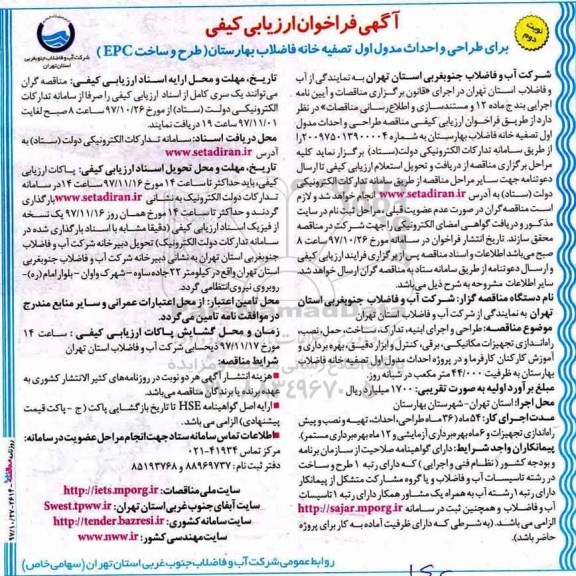 آگهی فراخوان ارزیابی کیفی
نوبت دوم
برای طراحی و احداث مدول اول تصفیه خانه فاضلاب بهارستان (طرح و ساخت EPC)
شرکت آب و فاضلاب جنوبغربی
استان تهران
شرکت آب و فاضلاب جنوبغربی استان تهران به نمایندگی از آب
و فاضلاب استان تهران در اجرای «قانون برگزاری مناقصات و آیین نامه
اجرایی بند ج ماده ۱۲ و مستندسازی و اطلاع رسانی مناقصات» در نظر
دارد از طریق فراخوان ارزیابی کیفی مناقصه طراحی و احداث مدول
اول تصفیه خانه فاضلاب بهارستان به شماره ۲۰۰۹۷۵۰۱۳۹۰۰۰۰۴ را
از طریق سامانه تدارکات الکترونیکی دولت (ستاد) برگزار نماید کلیه
مراحل برگزاری مناقصه از دریافت و تحویل استعلام ارزیابی کیفی تا ارسال
دعوتنامه جهت سایر مراحل مناقصه از طریق سامانه تدارکات الکترونیکی
دولت (ستاد) به آدرس www.setadiran.ir انجام خواهد شد و لازم
است مناقصه گران در صورت عدم عضویت قبلی، مراحل ثبت نام در سایت
مذکور و دریافت گواهی امضای الکترونیکی را جهت شرکت در مناقصه
محقق سازند. تاریخ انتشار فراخوان در سامانه مورخ ۹۷/۱۰/۲۶ ساعت ۸
صبح می باشد اطلاعات و اسناد مناقصه پس از برگزاری فرایند ارزیابی کیفی
و ارسال دعوتنامه از طریق سامانه ستاد به مناقصه گران ارسال خواهد شد.
سایر اطلاعات مشروحه به شرح ذیل می باشد.
نام دستگاه مناقصه گزار: شرکت آب و فاضلاب جنوبغربی استان
تهران به نمایندگی از شرکت آب و فاضلاب استان تهران
موضوع مناقصه: طراحی و اجرای ابنیه، تدارک، ساخت، حمل، نصب،
راه اندازی تجهیزات مکانیکی، برقی، کنترل و ابزار دقیق، بهره برداری و
آموزش کارکنان کارفرما و در پروژه احداث مدول اول تصفیه خانه فاضلاب
بهارستان به ظرفیت ۴۴/۰۰۰ متر مکعب در شبانه روز.
مبلغ برآورد اولیه به صورت تقریبی: ۱۷۰۰ میلیارد ریال
محل اجرا: استان تهران- شهرستان بهارستان
مدت اجرای کار: ۵۴ ماه (۳۶ ماه طراحی، احداث، تهیه و نصب و پیش
راه اندازی تجهیزات و ۶ ماه بهره برداری آزمایشی و ۱۲ ماه بهره برداری مستمر).
پیمانکاران واجد شرایط: دارای گواهینامه صلاحیت از سازمان برنامه
و بودجه کشور (نظام فنی و اجرایی) که دارای رتبه ۱ طرح و ساخت
در رشته تاسیسات آب و فاضلاب و یا گروه مشارکت متشکل از پیمانکار
دارای رتبه ۱ رشته آب به همراه یک مشاور همکار دارای رتبه ۱ تاسیسات
آب و فاضلاب و همچنین ثبت در سامانه http://sajar.mporg.ir
الزامی می باشد. (به شرطی که دارای ظرفیت آماده به کار برای پروژه
حاضر باشد).
تاریخ، مهلت و محل ارایه اسناد ارزیابی کیفی: مناقصه گران
می توانند یک سری کامل از اسناد ارزیابی کیفی را صرفا از سامانه تدارکات
الکترونیکی دولت (ستاد) از مورخ ۹۷/۱۰/۲۶ ساعت ۸ صبح لغایت
۹۷/۱۱/۰۱ ساعت ۱۹ دریافت نمایند.
محل دریافت اسناد: سامانه تدارکات الکترونیکی دولت (ستاد) به
آدرس www.setadiran.ir
تاریخ، مهلت و محل تحویل اسناد ارزیابی کیفی: پاکات ارزیابی
کیفی، باید حداکثر تا ساعت ۱۴ مورخ ۹۷/۱۱/۱۶ ساعت ۱۴ در سامانه
تدارکات دولت الکترونیک به نشانی www.setadiran.ir بارگذاری
گردند و حداکثر تا ساعت ۱۴ مورخ همان روز ۹۷/۱۱/۱۶ یک نسخه
از فیزیک اسناد ارزیابی کیفی (دقیقا مشابه با اسناد بارگذاری شده در
سامانه تدارکات دولت الکترونیک) تحویل دبیرخانه شرکت آب و فاضلاب
جنوبغربی استان تهران به نشانی دبیرخانه شرکت آب و فاضلاب جنوبغربی
استان تهران واقع در کیلومتر ۲۲ جاده ساوه - شهرک واوان - بلوار امام (ره)-
روبروی نیروی انتظامی گردد.
محل تامین اعتبار: از محل اعتبارات عمرانی و سایر منابع مندرج
در موافقت نامه تامین می گردد.
زمان و محل گشایش پاکات ارزیابی کیفی: ساعت ۱۴
مورخ ۹۷/۱۱/۱۷ ذیحسابی شرکت آب و فاضلاب استان تهران
شرایط مناقصه:
هزینه انتشار آگهی هر دو نوبت در روزنامه های کثیر الانتشار کشوری به
عهده برنده یا برندگان مناقصه می باشد.
ارایه اصل گواهینامه HSE تا تاریخ بازگشایی پاکت (ج - پاکت قیمت
پیشنهادی) الزامی می باشد.
اطلاعات تماس سامانه ستاد جهت انجام مراحل عضویت در سامانه:
مرکز تماس ۴۱۹۳۴-۰۲۱
دفتر ثبت نام: ۸۸۹۶۹۷۳۷ و ۸۵۱۹۳۷۶۸
سایت ملی مناقصات: http://iets.mporg.ir
سایت آبفای جنوب غربی استان تهران: Swest.tpww.ir
سایت سامانه کشوری: http://tender.bazresi.ir
سایت مهندسی کشور: www.nww.ir
روابط عمومی شرکت آب و فاضلاب جنوب غربی استان تهران (سهامی خاص)